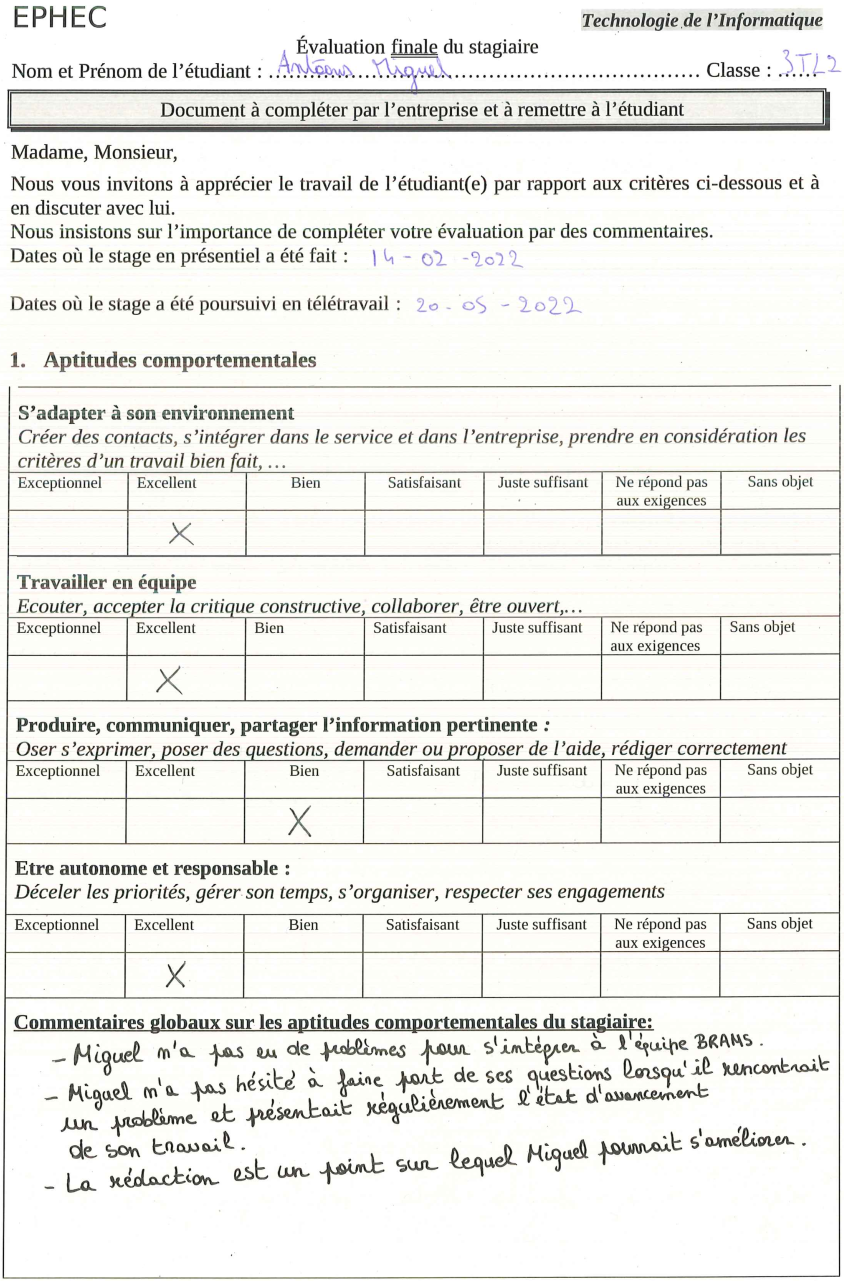 EPHEC
Technologie de l'Informatique
Évaluation finale du stagiaire
Nom et Prénom de l'étudiant : Miguel Classe : 3TL2
Document à compléter par l'entreprise et à remettre à l'étudiant
Madame, Monsieur,
Nous vous invitons à apprécier le travail de l'étudiant(e) par rapport aux critères ci-dessous et à
en discuter avec lui.
Nous insistons sur l'importance de compléter votre évaluation par des commentaires.
Dates où le stage en présentiel a été fait : 14-02-2022
Dates où le stage a été poursuivi en télétravail : 20-05-2022
1. Aptitudes comportementales
S'adapter à son environnement
Créer des contacts, s'intégrer dans le service et dans l'entreprise, prendre en considération les
critères d'un travail bien fait, …
Exceptionnel Excellent Bien Satisfaisant Juste suffisant Ne répond pas Sans objet
aux exigences
X
Travailler en équipe
Ecouter, accepter la critique constructive, collaborer, être ouvert,…
Exceptionnel Excellent Bien Satisfaisant Juste suffisant Ne répond pas Sans objet
aux exigences
X
Produire, communiquer, partager l'information pertinente :
Oser s'exprimer, poser des questions, demander ou proposer de l'aide, rédiger correctement
Exceptionnel Excellent Bien Satisfaisant Juste suffisant Ne répond pas Sans objet
aux exigences
X
Etre autonome et responsable :
Déceler les priorités, gérer son temps, s'organiser, respecter ses engagements
Exceptionnel Excellent Bien Satisfaisant Juste suffisant Ne répond pas Sans objet
aux exigences
X
Commentaires globaux sur les aptitudes comportementales du stagiaire:
- Miguel n'a pas eu de problèmes pour s'intégrer à l'équipe BRAMS.
- Miguel n'a pas hésité à faire part de ses questions lorsqu'il rencontrait
un problème et présentait régulièrement l'état d'avancement
de son travail.
- La rédaction est un point sur lequel Miguel pourrait s'améliorer.